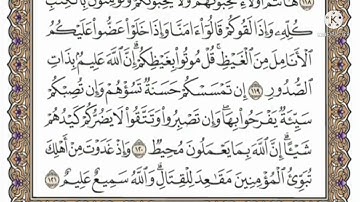 هَٰٓأَنتُمْ أُو۟لَآءِ تُحِبُّونَهُمْ وَلَا يُحِبُّونَكُمْ وَتُؤْمِنُونَ بِٱلْكِتَٰبِ
كُلِّهِۦ وَإِذَا لَقُوكُمْ قَالُوٓا۟ ءَامَنَّا وَإِذَا خَلَوْا۟ عَضُّوا۟ عَلَيْكُمُ
ٱلْأَنَامِلَ مِنَ ٱلْغَيْظِ ۚ قُلْ مُوتُوا۟ بِغَيْظِكُمْ ۗ إِنَّ ٱللَّهَ عَلِيمٌۢ بِذَاتِ
ٱلصُّدُورِ ١١٩ إِن تَمْسَسْكُمْ حَسَنَةٌ تَسُؤْهُمْ وَإِن تُصِبْكُمْ
سَيِّئَةٌ يَفْرَحُوا۟ بِهَا ۖ وَإِن تَصْبِرُوا۟ وَتَتَّقُوا۟ لَا يَضُرُّكُمْ كَيْدُهُمْ
شَيْـًٔا ۗ إِنَّ ٱللَّهَ بِمَا يَعْمَلُونَ مُحِيطٌ ١٢٠ وَإِذْ غَدَوْتَ مِنْ أَهْلِكَ
تُبَوِّئُ ٱلْمُؤْمِنِينَ مَقَٰعِدَ لِلْقِتَالِ ۗ وَٱللَّهُ سَمِيعٌ عَلِيمٌ ١٢١